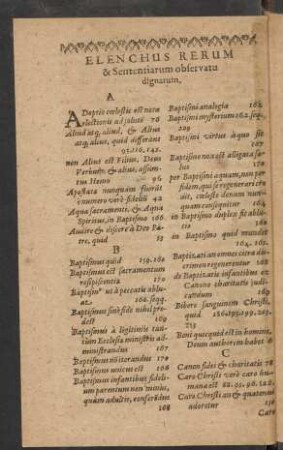 ELENCHUS RERUM
& Sententiarum observatu
dignarum.
A
ADoptio cœlestis est nota
electionis ad salutē 78
Aliud atq; aliud, & Alius
atq; alius, quid differant
92.128.145.
non Alius est Filius, Deus
Verbum, & alius, assum-
tus Homo 96
Apostata nunquam fuerit
è numero verè fidelium 42
Aqua sacramenti, & Aqua
Spiritus, in Baptismo 160
Audire & discere à Deo Pa-
tre, quid 55
B
Baptismus quid 159.161
Baptismus est sacramentum
respiscentia 170
Baptism' ut à peccatis ablu-
at 162.seqq.
Baptismus sine fide nihil pro-
dest 169
Baptismus à legitimis tan-
tùm Ecclesia ministris ad-
ministrandus 167
Baptismus nō iterandus 170
Baptismus unicus est 168
Baptismus infantibus fideli-
um parentum non minùs,
quàm adultis, conferēdus
168
Baptismi analogia 162
Baptismi mysterium 162.seq.
209
Baptismi virtus à quo sit
167
Baptismo non est alligata sa-
lus 170
per Baptismi aquam, non per
fidem, qui se regenerari cre-
dit, cœleste donum nun-
quam consequitur 164
in Baptismo duplex fit ablu-
tio 162
in Baptismo quid mundet
164.165.
Baptizati an omnes citra di-
scrimen regenerentur 168
de Baptizatis infantibus ex
Canone charitatis judi-
catio 169
Bibere sanguinem Christi,
quid 186.199.
213
Boni quicquid est in homine,
Deum authorem habet
C
Canon fidei & charitatis 78
Caro Christi verè caro hu-
mana est 88.95.96.
Caro Christi an & quatenus
adoretur 130
Caro